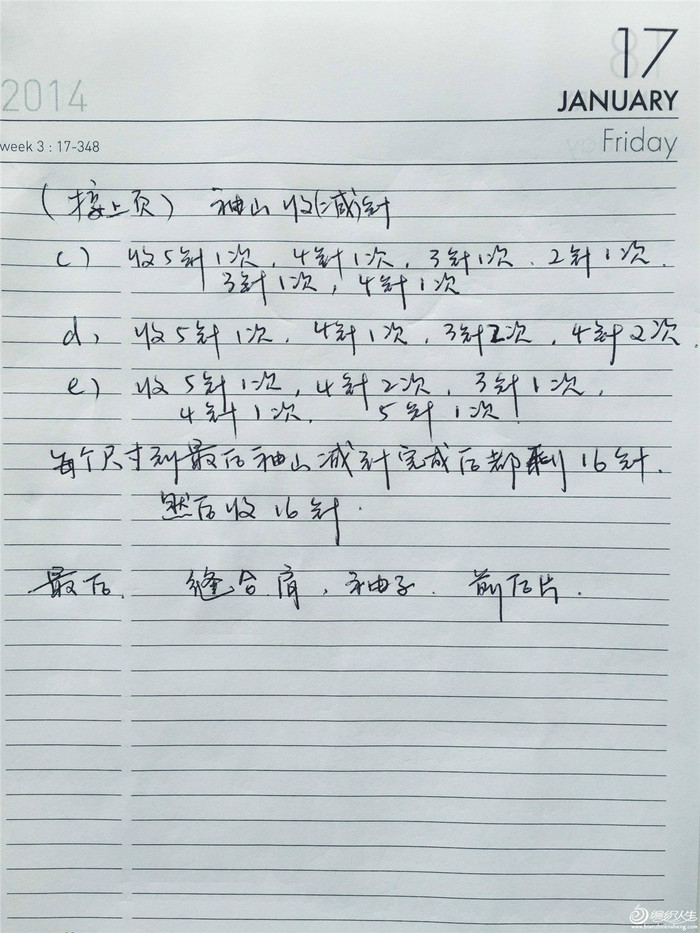 17
2014
JANUARY
week 3 : 17-348
Friday
(接上页) 袖山收(减)针
c) 收5针1次, 4针1次, 3针1次、2针1次.
3针1次, 4针1次
d, 收5针1次, 4针1次, 3针2次, 4针2次.
e) 收5针1次, 4针2次, 3针1次,
4针1次, 5针1次
每个尺寸到最后袖山减针完成后都剩16针.
然后收16针.
最后, 缝合肩, 袖子. 前后片.
编织人生
www.bianzhirensheng.com